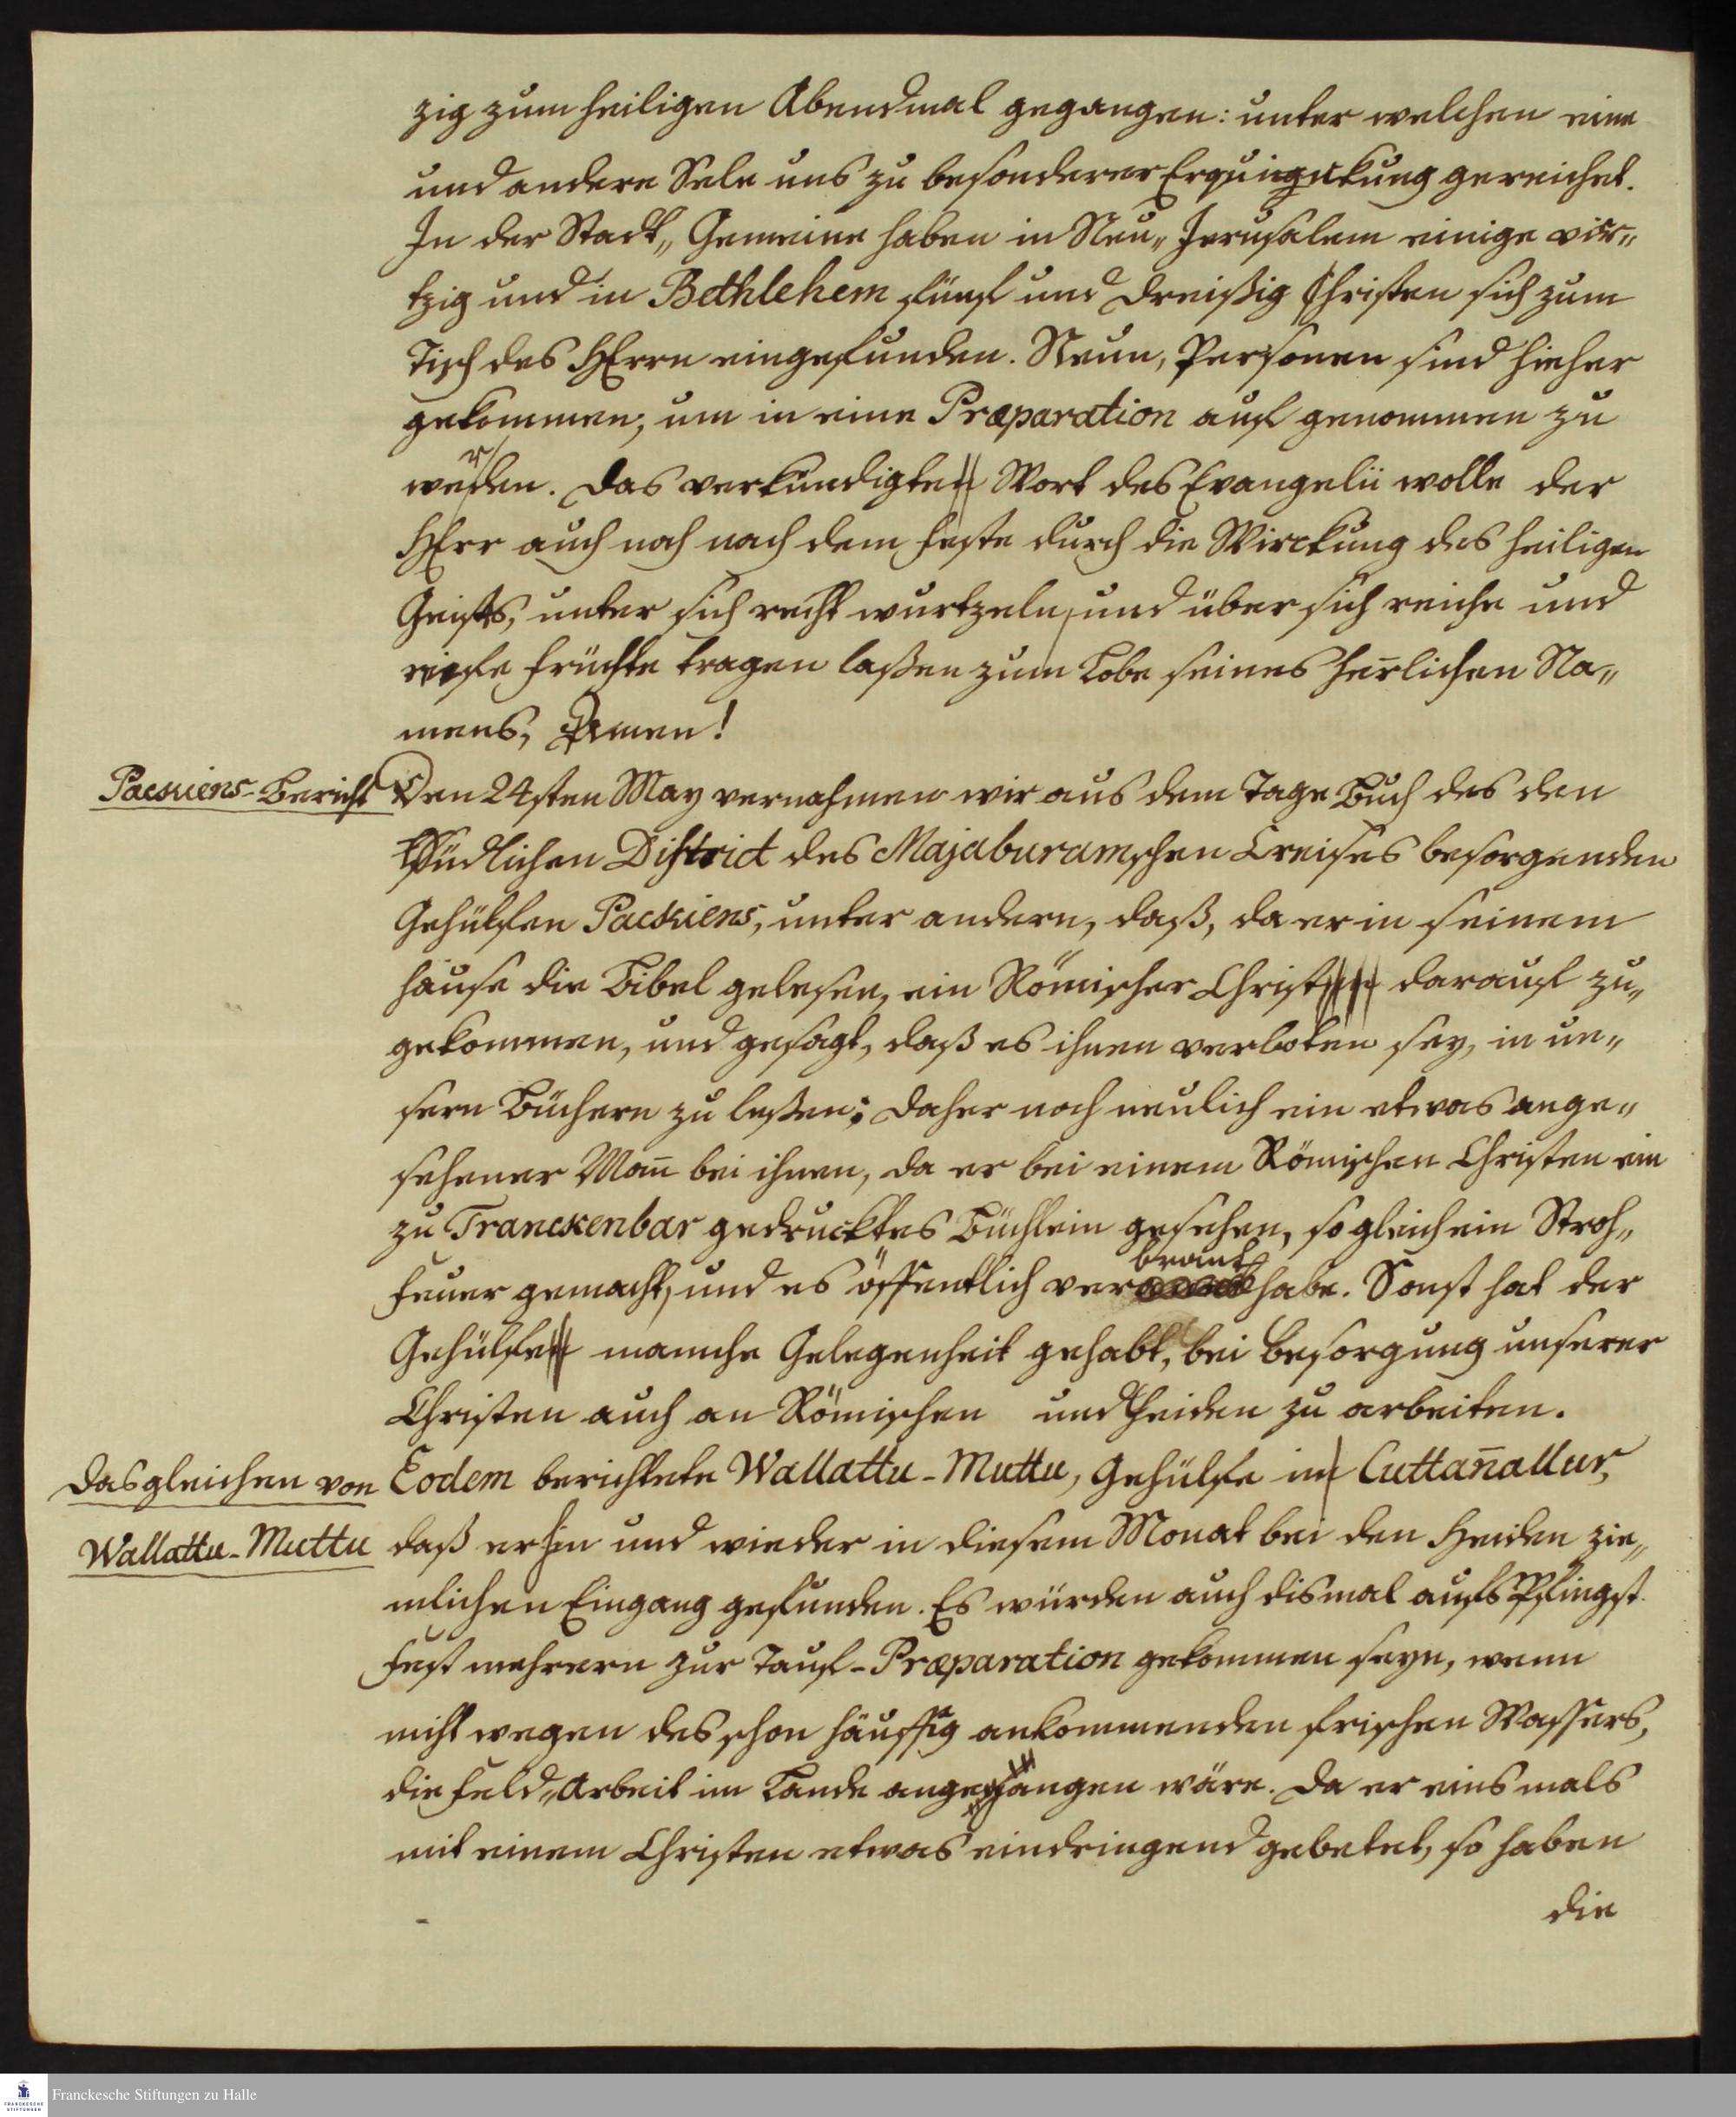 zig zum heiligen Abendmal gegangen: unter welchen eine
und andere Sele uns zu besonderer Erquickung gereichet.
In der Stadt„ Gemeine haben in Neu„ Jerusalem einige vier„
tzig und in Bethlehem fünf und dreißig Christen sich zum
Tisch des HErrn eingefunden. Neun, Personen sind hieher
gekommen, um in eine Præparation auf genommen zu
werden. Das verkündigte Wort des Evangelii wolle der
HErr auch noch nach dem Feste durch die Wirckung des heiligen
Geists, unter sich recht wurtzeln, und über sich reiche und
reife Früchte tragen laßen zum Lobe seines herr̄lichen Na„
mens, Amen!
Packiens-Bericht Den 24sten May vernahmen wir aus dem Tage Buch des den
Südlichen District des Majaburamschen Creises besorgenden
Gehülfen Packiens, unter andern, daß, da er in seinem
Hause die Bibel gelesen, ein Römischer Christ darauf zu„
gekommen, und gesagt, daß es ihnen verboten sey, in un„
sern Büchern zu leßen; Daher noch neulich ein etwas ange„
sehener Man̄ bei ihnen, da er bei einem Römischen Christen ein
zu Tranckenbar gedrucktes Büchlein gesehen, so gleich ein Stroh„
Feuer gemacht, und es öffentlich verbrant habe. Sonst hat der
Gehülfe manche Gelegenheit gehabt, bei Besorgung unserer
Christen auch an Römischen und Heiden zu arbeiten.
Dasgleichen von Eodem berichtete Wallattu-Muttu, Gehülfe in Cuttan̄allur,
Wallattu-Muttu daß er hin und wieder in diesem Monat bei den Heiden zie„
mlichen Eingang gefunden. Es würden auch dismal aufs Pfingst
Fest mehrern zur Tauf-Præparation gekommen seyn, wenn
nicht wegen des schon häuffig ankommenden frischen Wassers,
die Feld„Arbeit im Lande angegangen wäre. Da er eins mals
mit einem Christen etwas eindringend gebetet, so haben
die
Franckesche Stiftungen zu Halle